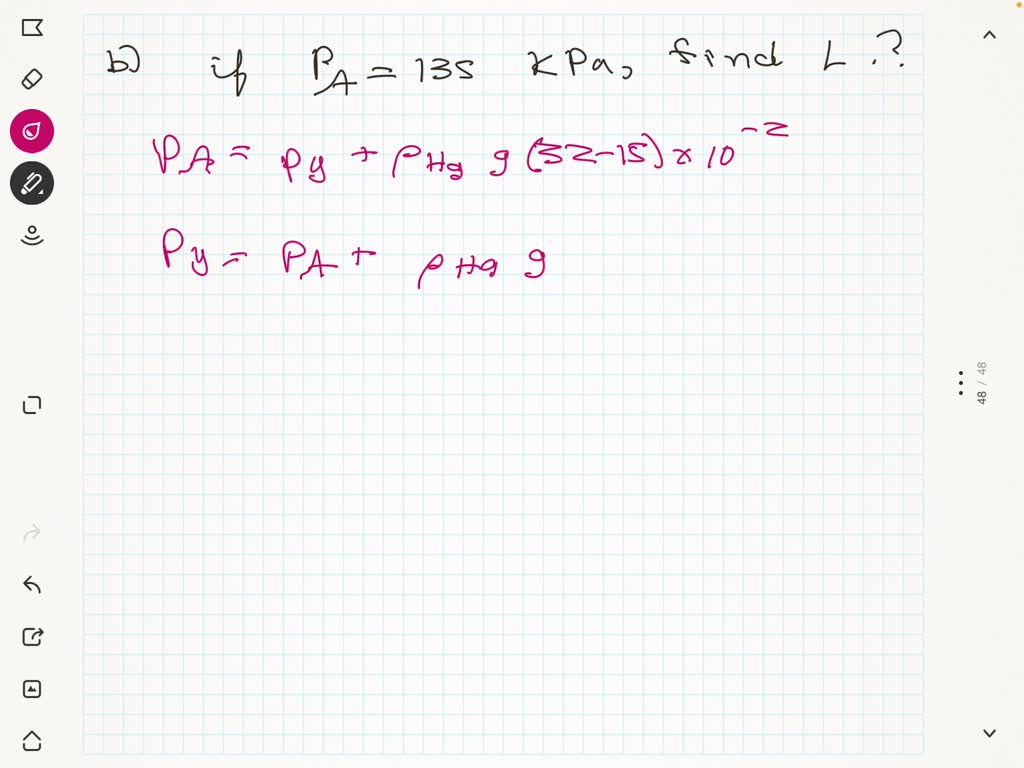 b) if PA = 135 KPa, find L ?
PA = Py + ρHg g (32-15) × 10⁻²
Py = PA + ρHg g
48 / 48